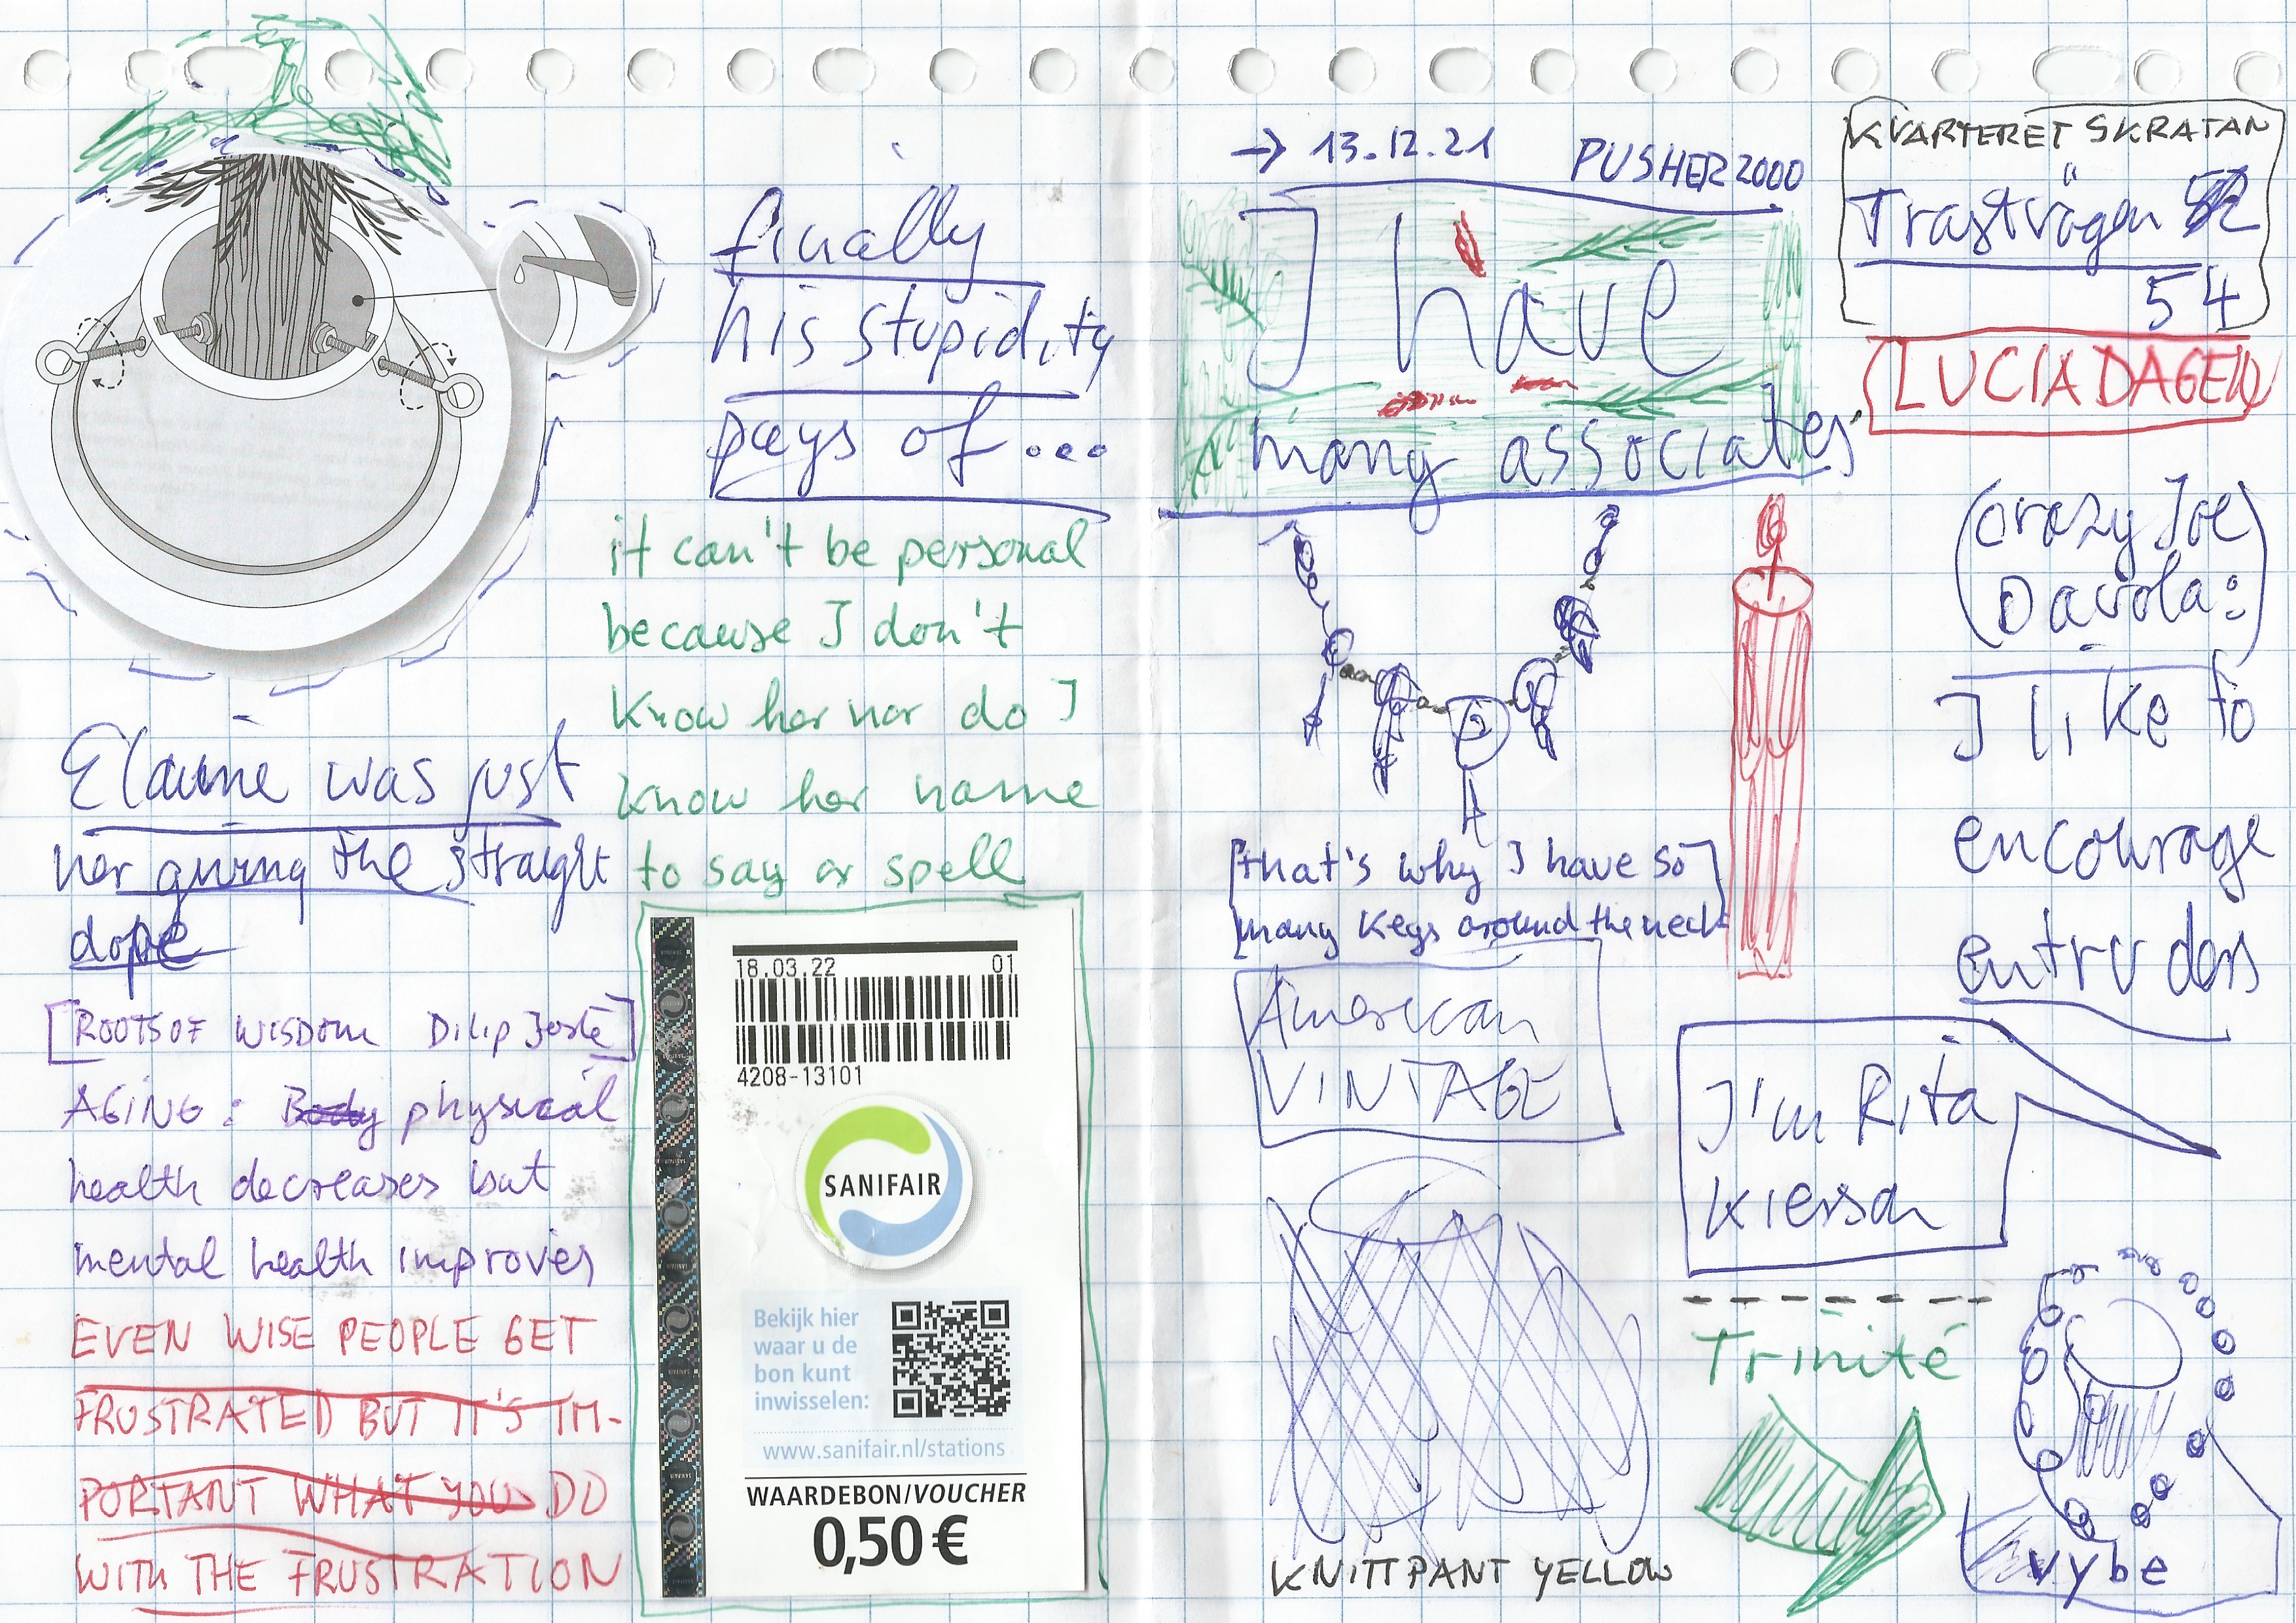 finally
his stupidity
pays of...
it can't be personal
because I don't
know her nor do I
know her name
to say or spell
Elaine was just
her giving the straight
dope
[ROOTS OF WISDOM Dilip Jeste]
AGING: Body physical
health decreases but
mental health improves
EVEN WISE PEOPLE GET
FRUSTRATED BUT IT'S IM-
PORTANT WHAT YOU DO
WITH THE FRUSTRATION
18.03.22 01
4208-13101
SANIFAIR
Bekijk hier
waar u de
bon kunt
inwisselen:
www.sanifair.nl/stations
WAARDEBON/VOUCHER
0,50 €
→ 13.12.21 PUSHER2000
I have
many associates
[that's why I have so
many keys around the neck
American
VINTAGE
KNITTPANT YELLOW
KVARTERET SKRATAN
Trastvägen
54
LUCIADAGEN
(Crazy Joe
Davola:)
I like to
encourage
intruders
I'm Rita
Kierson
Trinité
vybe